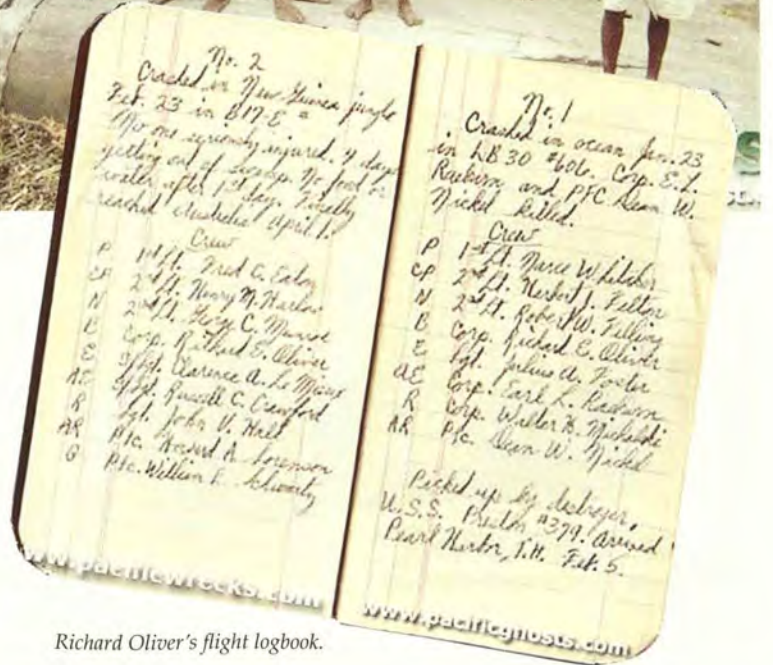 No. 2
Crashed in New Guinea jungle
Feb. 23 in B17-E #
No one seriously injured. 4 days
getting out of swamp. No food or
water after 1st day. Finally
reached Australia April 1.
Crew
P 1st Lt. Fred C. Eaton
CP 2nd Lt. Henry M. Harlow
N 2nd Lt. George C. Munroe
B Corp. Richard E. Oliver
E S/Sgt. Clarence A. Le Mieux
AE S/Sgt. Russell C. Crawford
R Sgt. John V. Hall
AR Pfc. Sorenson
G Pfc. William E. Schwartz
www.pacificwrecks.com
No. 1
Crashed in ocean Jan. 23
in LB 30 #606. Corp. E. L.
Raeburn and PFC Dean W.
Nickel killed.
Crew
P 1st Lt. Marce
CP 2nd Lt. Herbert J. Felton
N 2nd Lt. Robert W.
B Corp. Richard E. Oliver
E Sgt. Julius A. Foster
AE Corp. Earl L. Raeburn
R Corp. Walter
AR Pfc. Dean W. Nickel
Picked up by destroyer,
U.S.S. Preston #379. Arrived
Pearl Harbor, T.H. Feb. 5.
www.pacificghosts.com
Richard Oliver's flight logbook.